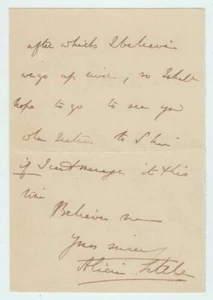 after which I believe
we go up river, so I shall
hope to go to see you
when return to S
if I cant manage it this
time
Believe me
Yours sincerely
Alicia